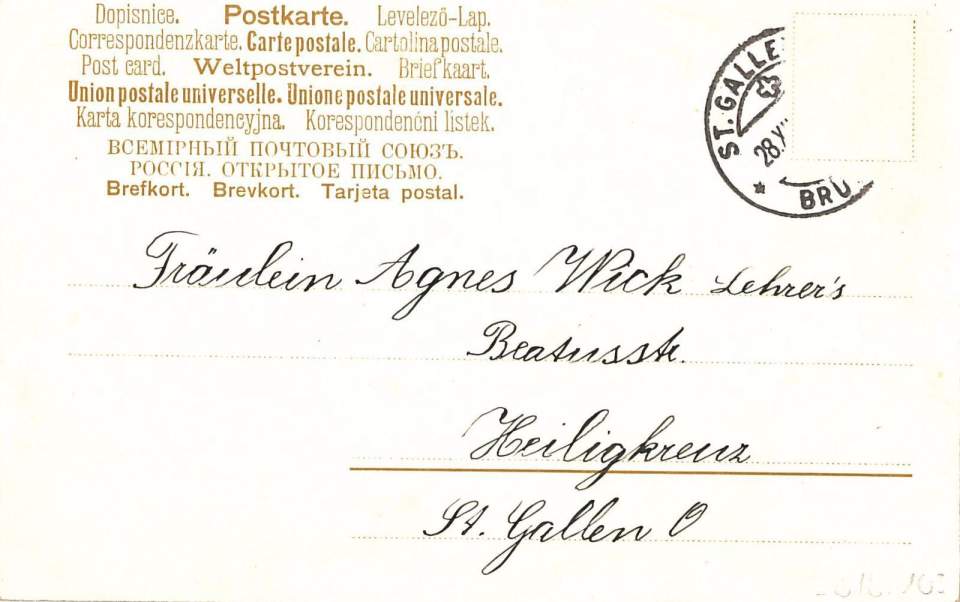 Dopisnice. Postkarte. Levelező-Lap.
Correspondenzkarte. Carte postale. Cartolina postale.
Post card. Weltpostverein. Briefkaart.
Union postale universelle. Unione postale universale.
Karta korespondencyjna. Korespondenční lístek.
ВСЕМІРНЫЙ ПОЧТОВЫЙ СОЮЗЪ.
РОССІЯ. ОТКРЫТОЕ ПИСЬМО.
Brefkort. Brevkort. Tarjeta postal.
ST. GALLE
28.X
BRU
Fräulein Agnes Wick Lehrer's
Beatusstr.
Heiligkreuz
St. Gallen O